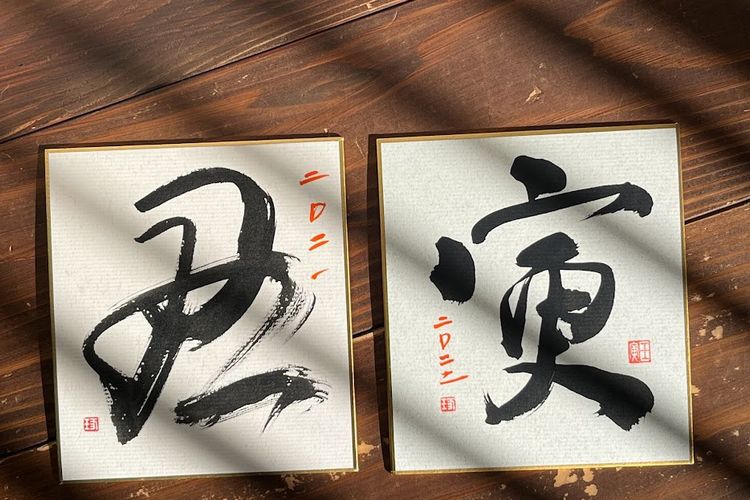 丑
二〇二一
寅
二〇二二